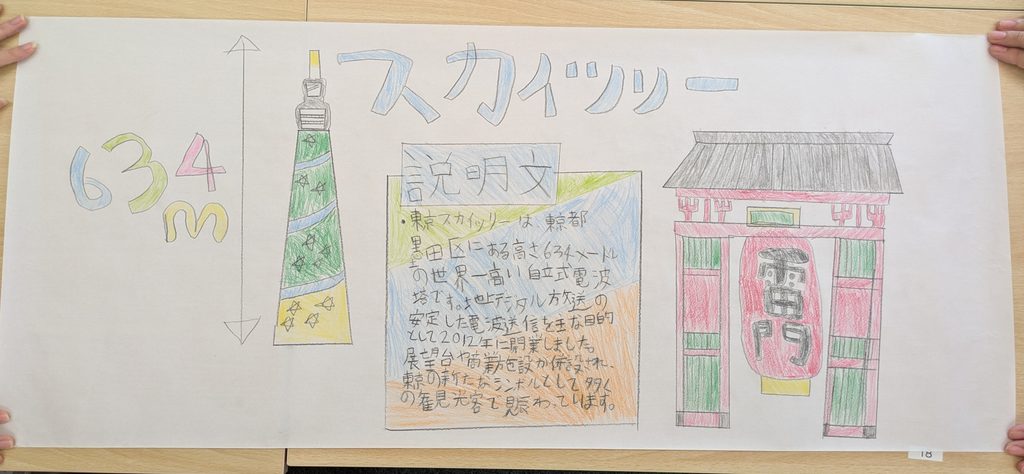 スカイツリー
634
m
説明文
・東京スカイツリーは、東京都
墨田区にある高さ634メートル
の世界一高い自立式電波
塔です。地上デジタル放送の
安定した電波送信を主な目的
として2012年に開業しました。
展望台や商業施設が併設され、
東京の新たなシンボルとして多く
の観光客で賑わっています。
雷門
18